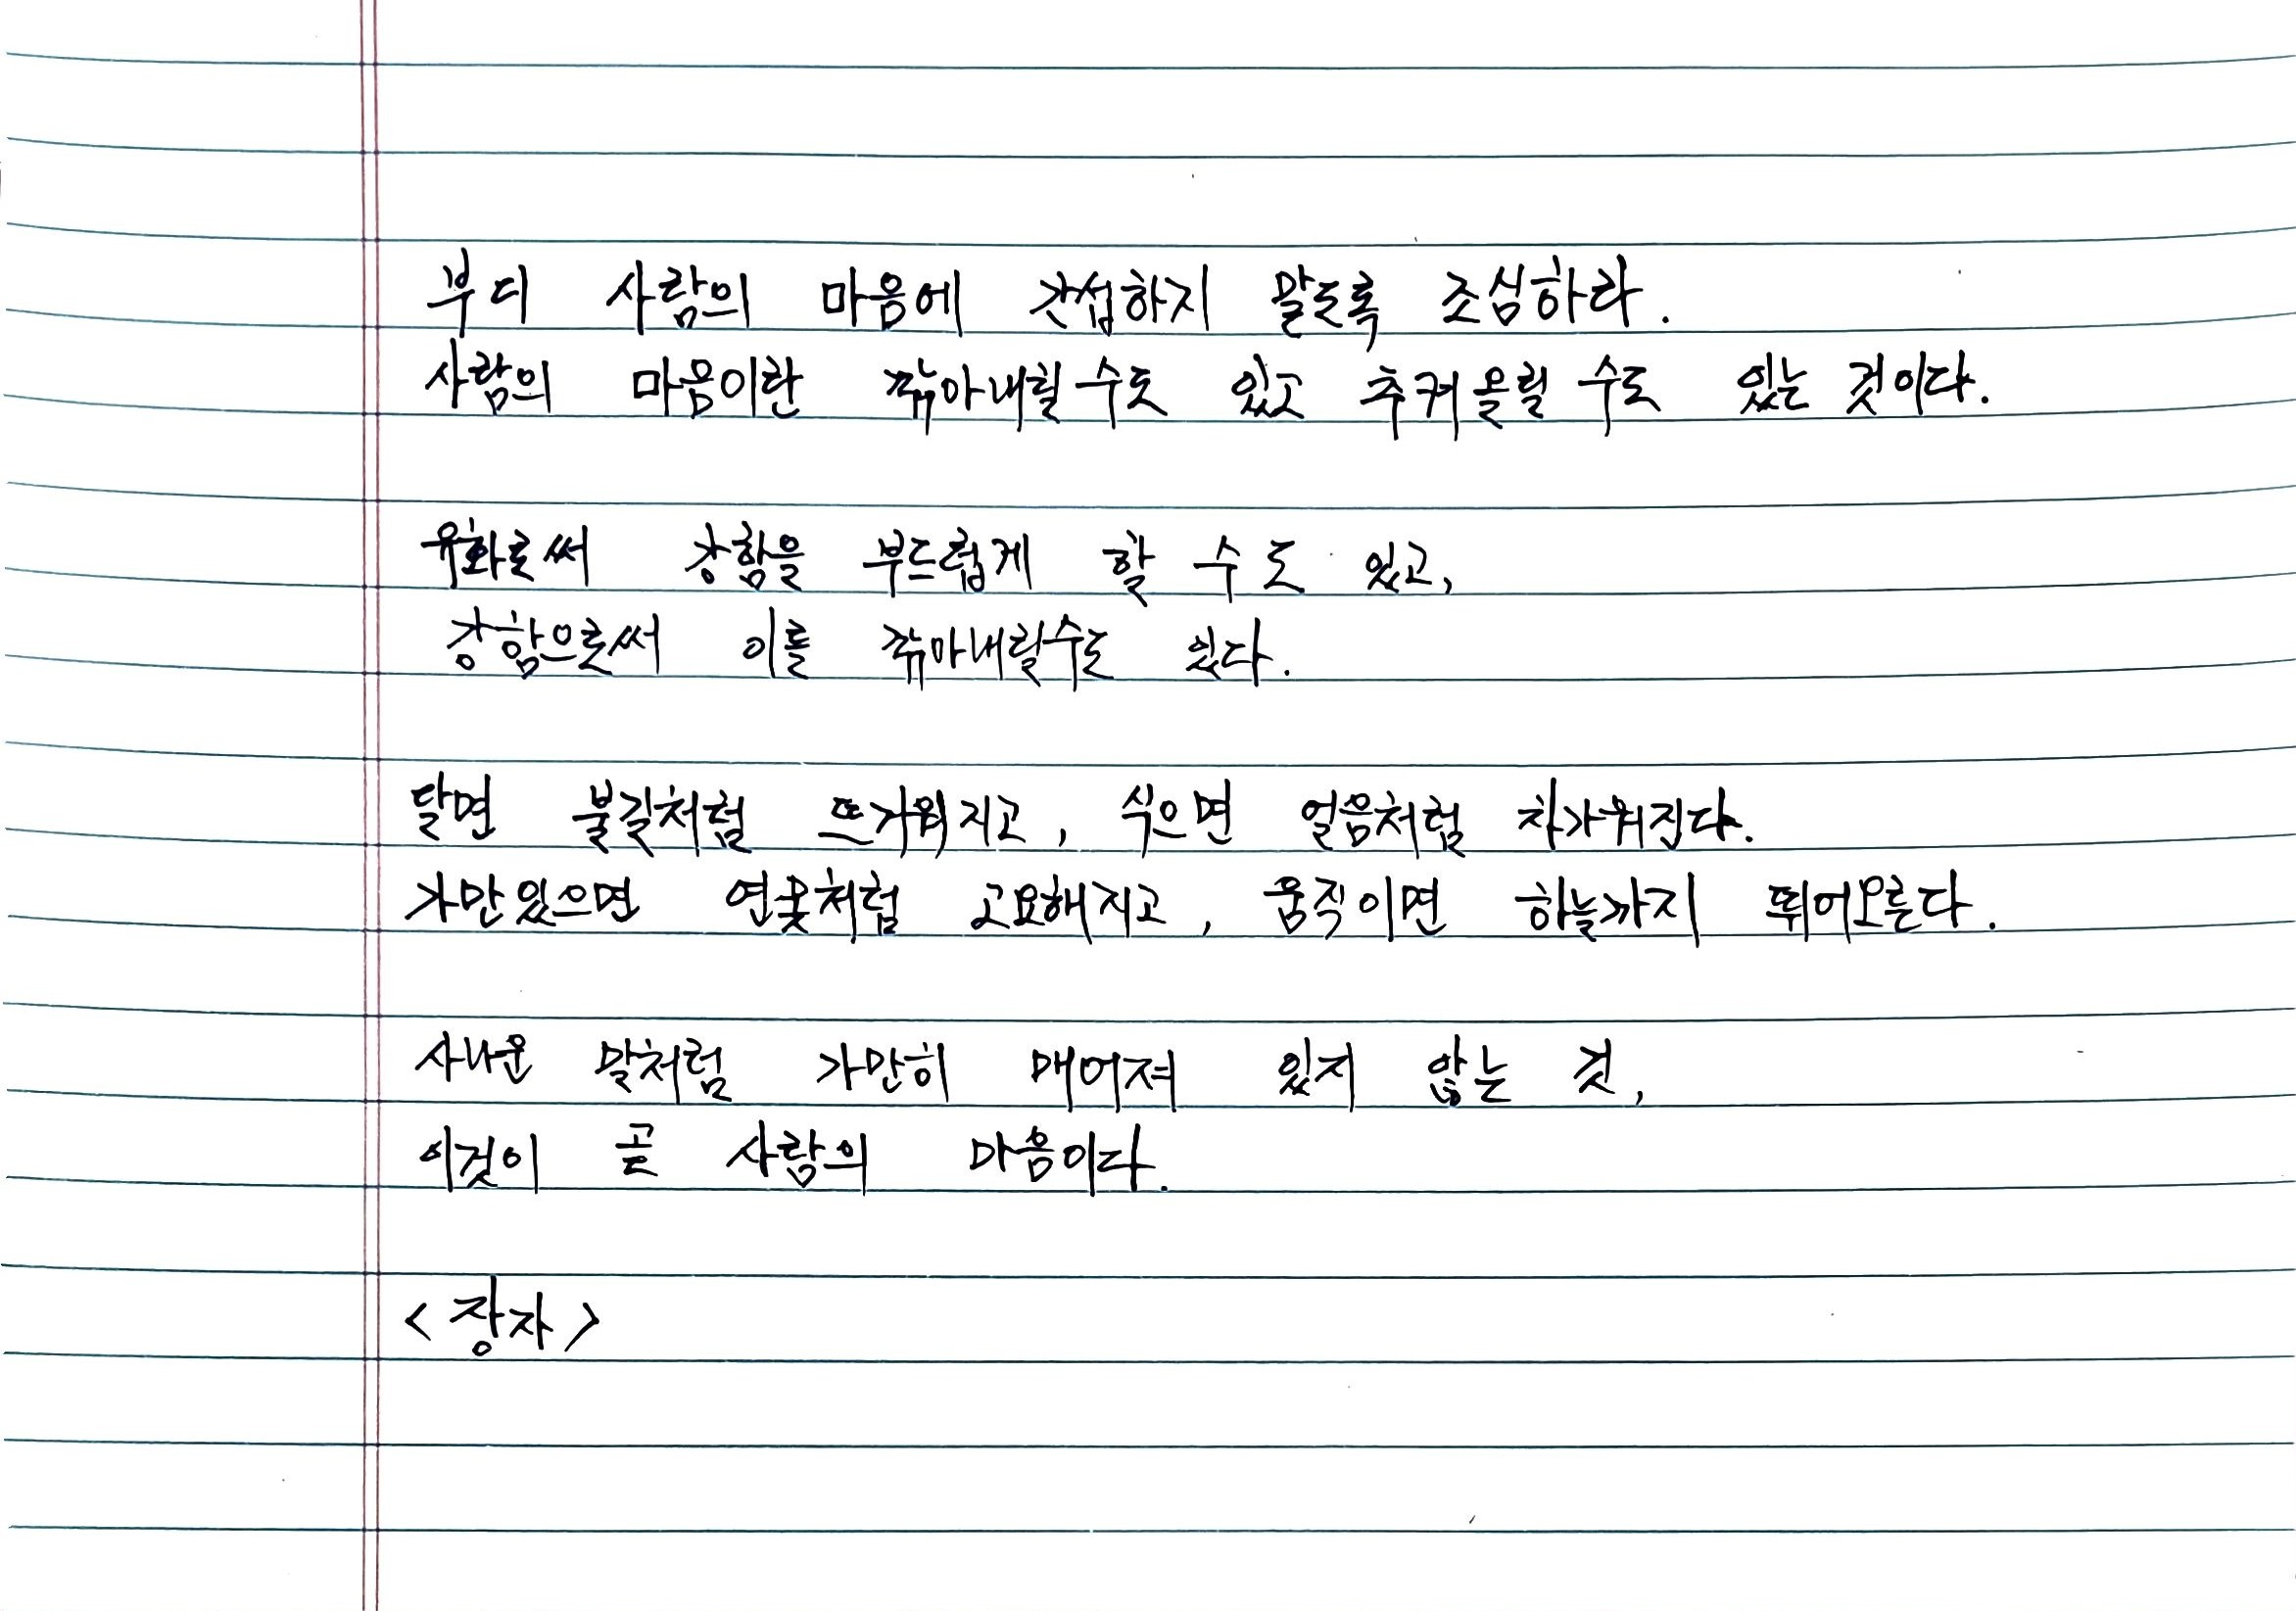 부디 사람의 마음에 간섭하지 말도록 조심하라.
사람의 마음이란 꺾아내릴수도 있고 추켜올릴 수도 있는 것이다.
유화로써 강함을 부드럽게 할 수도 있고,
강함으로써 이를 꺾아내릴수도 있다.
달면 불길처럼 뜨거워지고, 식으면 얼음처럼 차가워진다.
가만있으면 연못처럼 고요해지고, 움직이면 하늘까지 뛰어오른다.
사나운 말처럼 가만히 매어져 있지 않는 것,
이것이 곧 사람의 마음이다.
<장자>